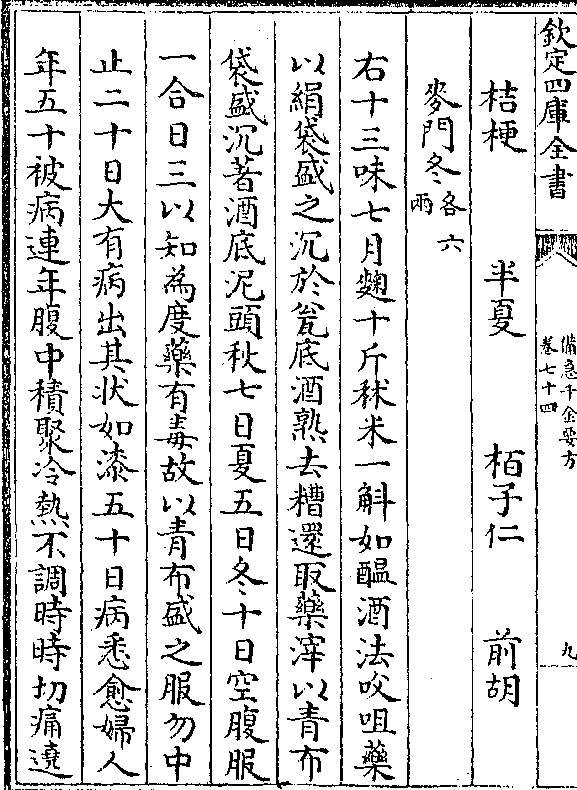 欽定四庫全書
備急千金要方
卷七十四
九
桔梗 半夏 栢子仁 前胡
麥門冬各六兩
右十三味七月麴十斤秫米一斛如醖酒法㕮咀藥
以絹袋盛之沉於瓮底酒熟去糟還取藥滓以青布
袋盛沉著酒底泥頭秋七日夏五日冬十日空腹服
一合日三以知為度藥有毒故以青布盛之服勿中
止二十日大有病出其狀如漆五十日病悉愈婦人
年五十被病連年腹中積聚冷熱不調時時切痛遶